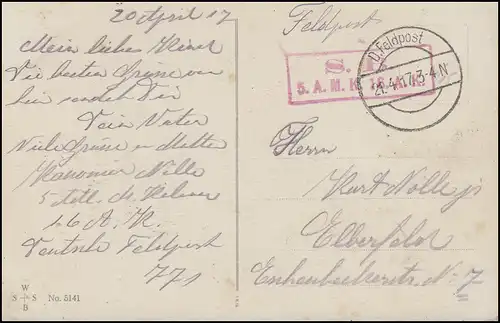 20 April 17
Mein liebes Kind
Die besten Grüsse von
hier sendet Dir
Dein Vater
Viele Grüsse an Mutter
Kanonier Nolle
5 A. R.
Deutsche Feldpost
771
W
S S
B
No. 5141
Feldpost
S.
5. A. M. K.
D. Feldpost
21.4.17.3-4N
Herrn
Kurt Nolle jr
Elberfeld
No 7